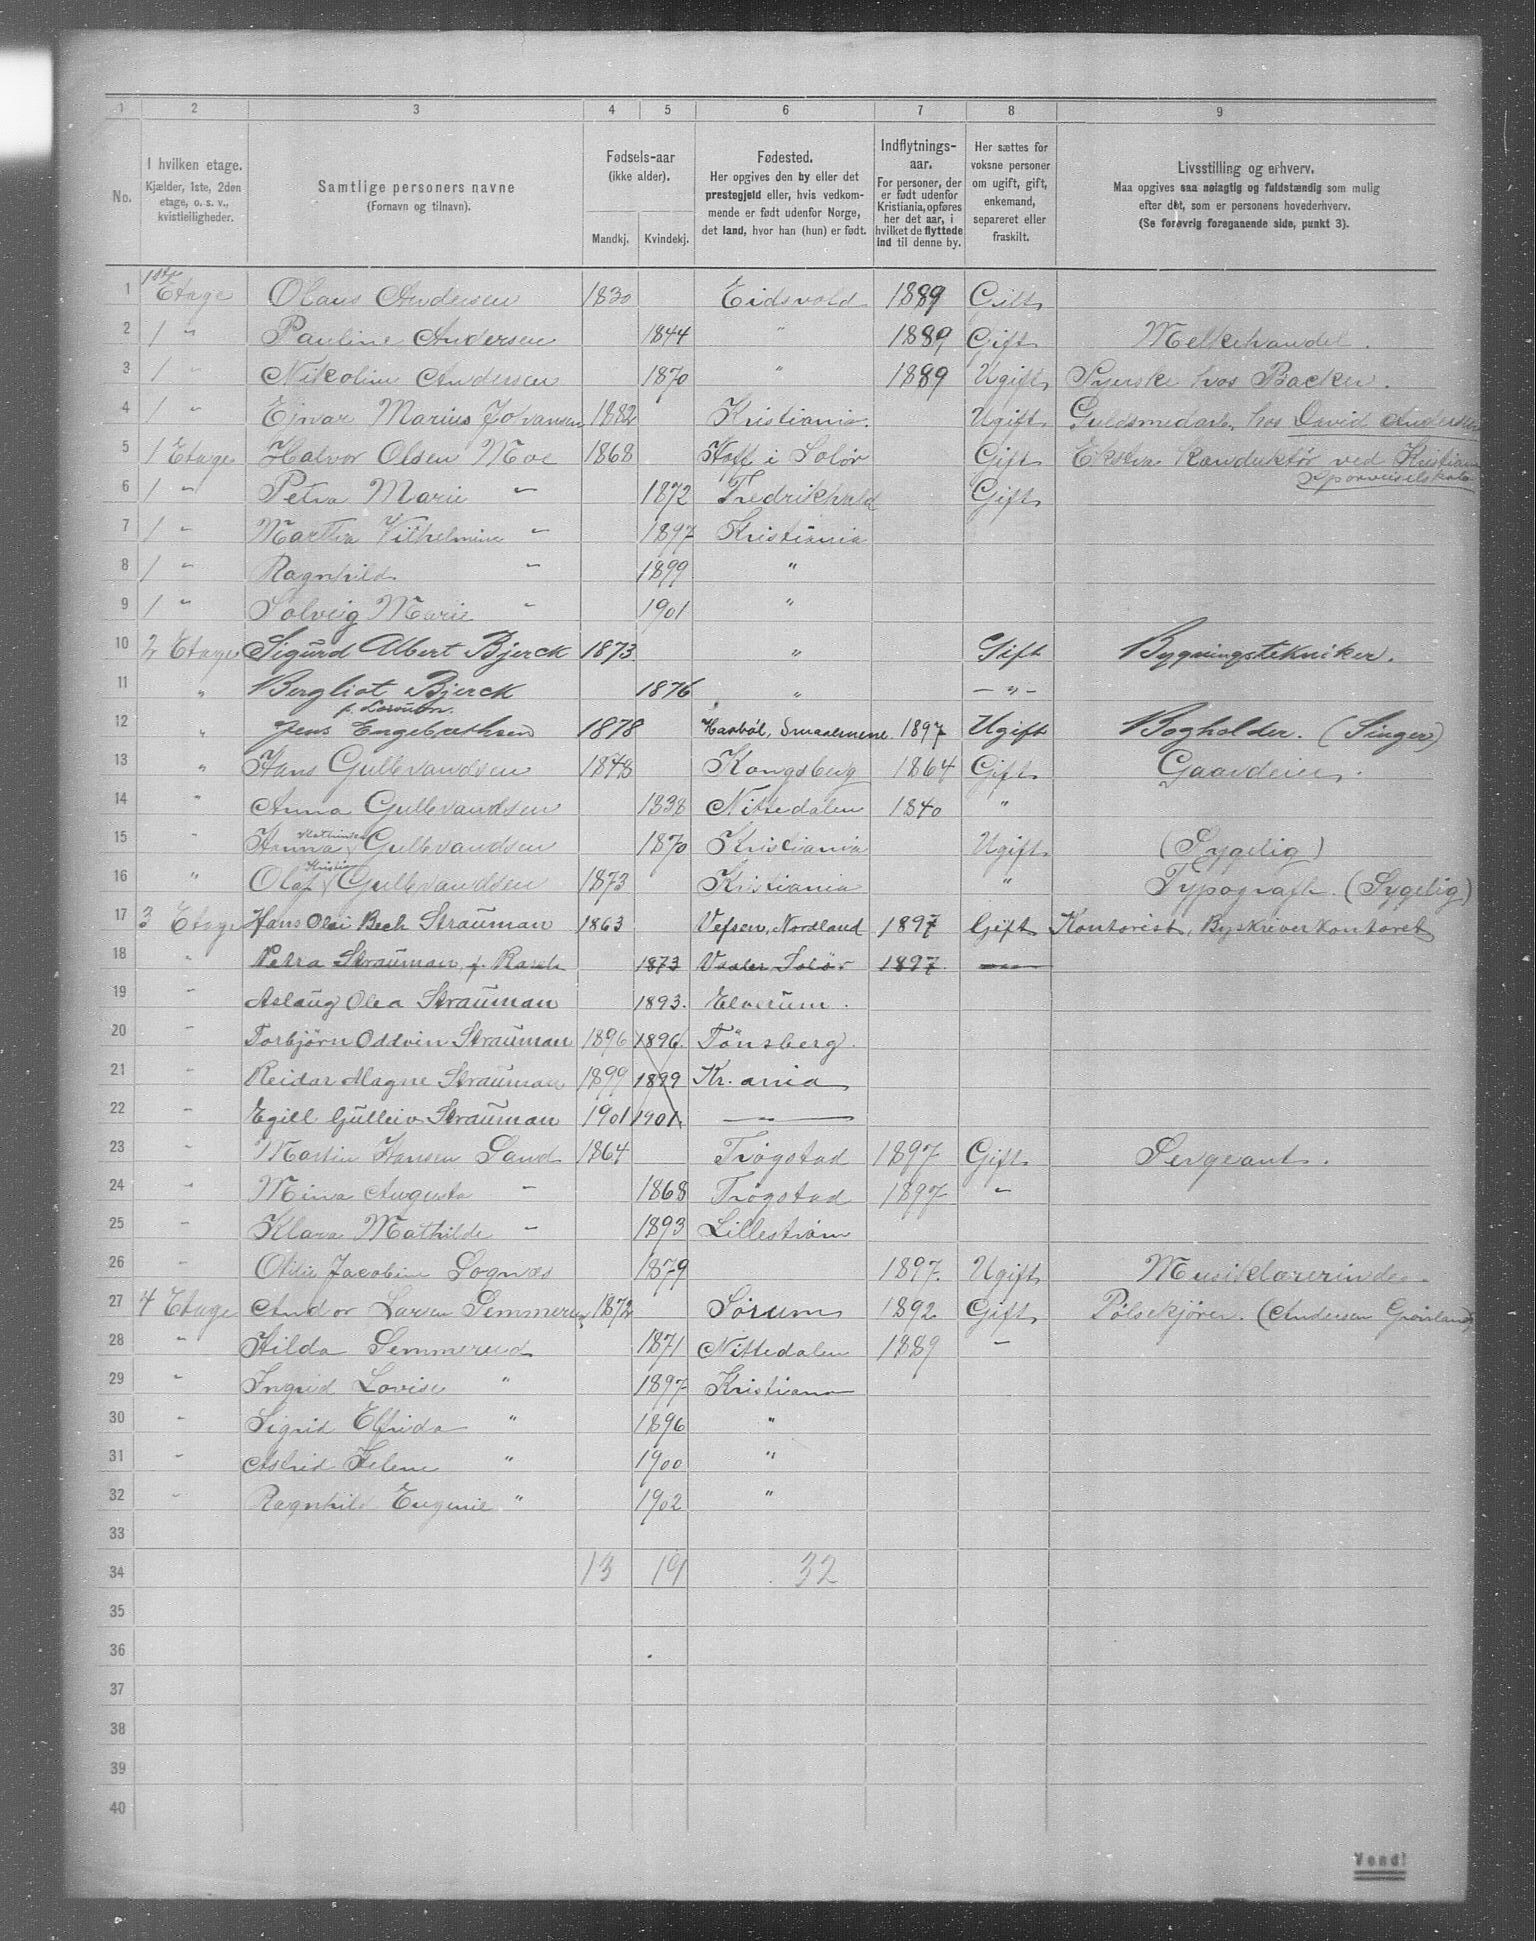 1 2 3 4 5 6 7 8 9
No.
I hvilken etage.
Kjælder, 1ste, 2den
etage, o. s. v.,
kvistleiligheder.
Samtlige personers navne
(Fornavn og tilnavn).
Fødsels-aar
(ikke alder).
Mandkj. Kvindekj.
Fødested.
Her opgives den by eller det
prestegjeld eller, hvis vedkom-
mende er født udenfor Norge,
det land, hvor han (hun) er født.
Indflytnings-
aar.
For personer, der
er født udenfor
Kristiania, opføres
her det aar, i
hvilket de flyttede
ind til denne by.
Her sættes for
voksne personer
om ugift, gift,
enkemand,
separeret eller
fraskilt.
Livsstilling og erhverv.
Maa opgives saa nøiagtig og fuldstændig som mulig
efter det, som er personens hovederhverv.
(Se forøvrig foregaaende side, punkt 3).
1 1ste Etage Olaus Andersen 1830 Eidsvold 1889 Gift
2 1 " Pauline Andersen 1844 " 1889 Gift Melkehandel.
3 1 " Nikoline Andersen 1870 " 1889 Ugift Syerske hos Backer.
4 1 " Ejnar Marius Johansen 1882 Kristiania. Ugift Guldsmedarb. hos David Andersen
5 1 Etage Halvor Olsen Moe 1868 Hoff i Solør Gift Ekstra Konduktør ved Kristiania
Sporveiselskab
6 1 " Petra Marie " 1872 Fredrikhald Gift
7 1 " Martha Vilhelmine " 1897 Kristiania
8 1 " Ragnhild " 1899 "
9 1 " Solveig Marie " 1901 "
10 2 Etage Sigurd Albert Bjerck 1873 " Gift Bygningstekniker.
11 " Bergliot Bjerck 1876 " - " -
12 " Jens Engebrethsen 1878 Haabøl, Smaalenene 1897 Ugift Bogholder. (Singer)
13 " Hans Gullbrandsen 1848 Kongsberg 1864 Gift Gaardeier.
14 " Anna Gulbrandsen 1838 Nittedalen 1840 "
15 " Hanna Mathinsen Gulbrandsen 1870 Kristiania Ugift (Sygelig)
16 " Olaf Kristian Gulbrandsen 1873 Kristiania " Typograf. (Sygelig)
17 3 Etage Hans Olai Bech Strauman 1863 Vefsen, Nordland 1897 Gift Kontorist, Byskriverkontoret
18 " Petra Strauman f. Rasch 1873 Vaaler Solør 1897 —
19 " Aslaug Olea Strauman 1893. Elverum.
20 " Torbjørn Oddvin Strauman 1896 1896. Tönsberg.
21 " Reidar Magne Strauman 1899 1899 Kr.ania
22 " Egill Gulleiv Strauman 1901 1901. —
23 " Martin Hansen Sand 1864 Trøgstad 1897 Gift Sergeant.
24 " Mina Augusta " 1868 Trøgstad 1897 "
25 " Klara Mathilde " 1893 Lillestrøm
26 " Otilie Jacobine Sognæs 1879 1897. Ugift Musiklærerinde.
27 4 Etage Andor Larsen Semmerud 1872 Sørum 1892 Gift Pølsekjører. (Andersen Grønland)
28 " Hilda Semmerud 1871 Nittedalen 1889 "
29 " Ingrid Lovise " 1897 Kristiania
30 " Sigrid Elfrida " 1896 "
31 " Astrid Helene " 1900 "
32 " Ragnhild Eugenie " 1902 "
33
34 13 19 32
35
36
37
38
39
40
Vend!